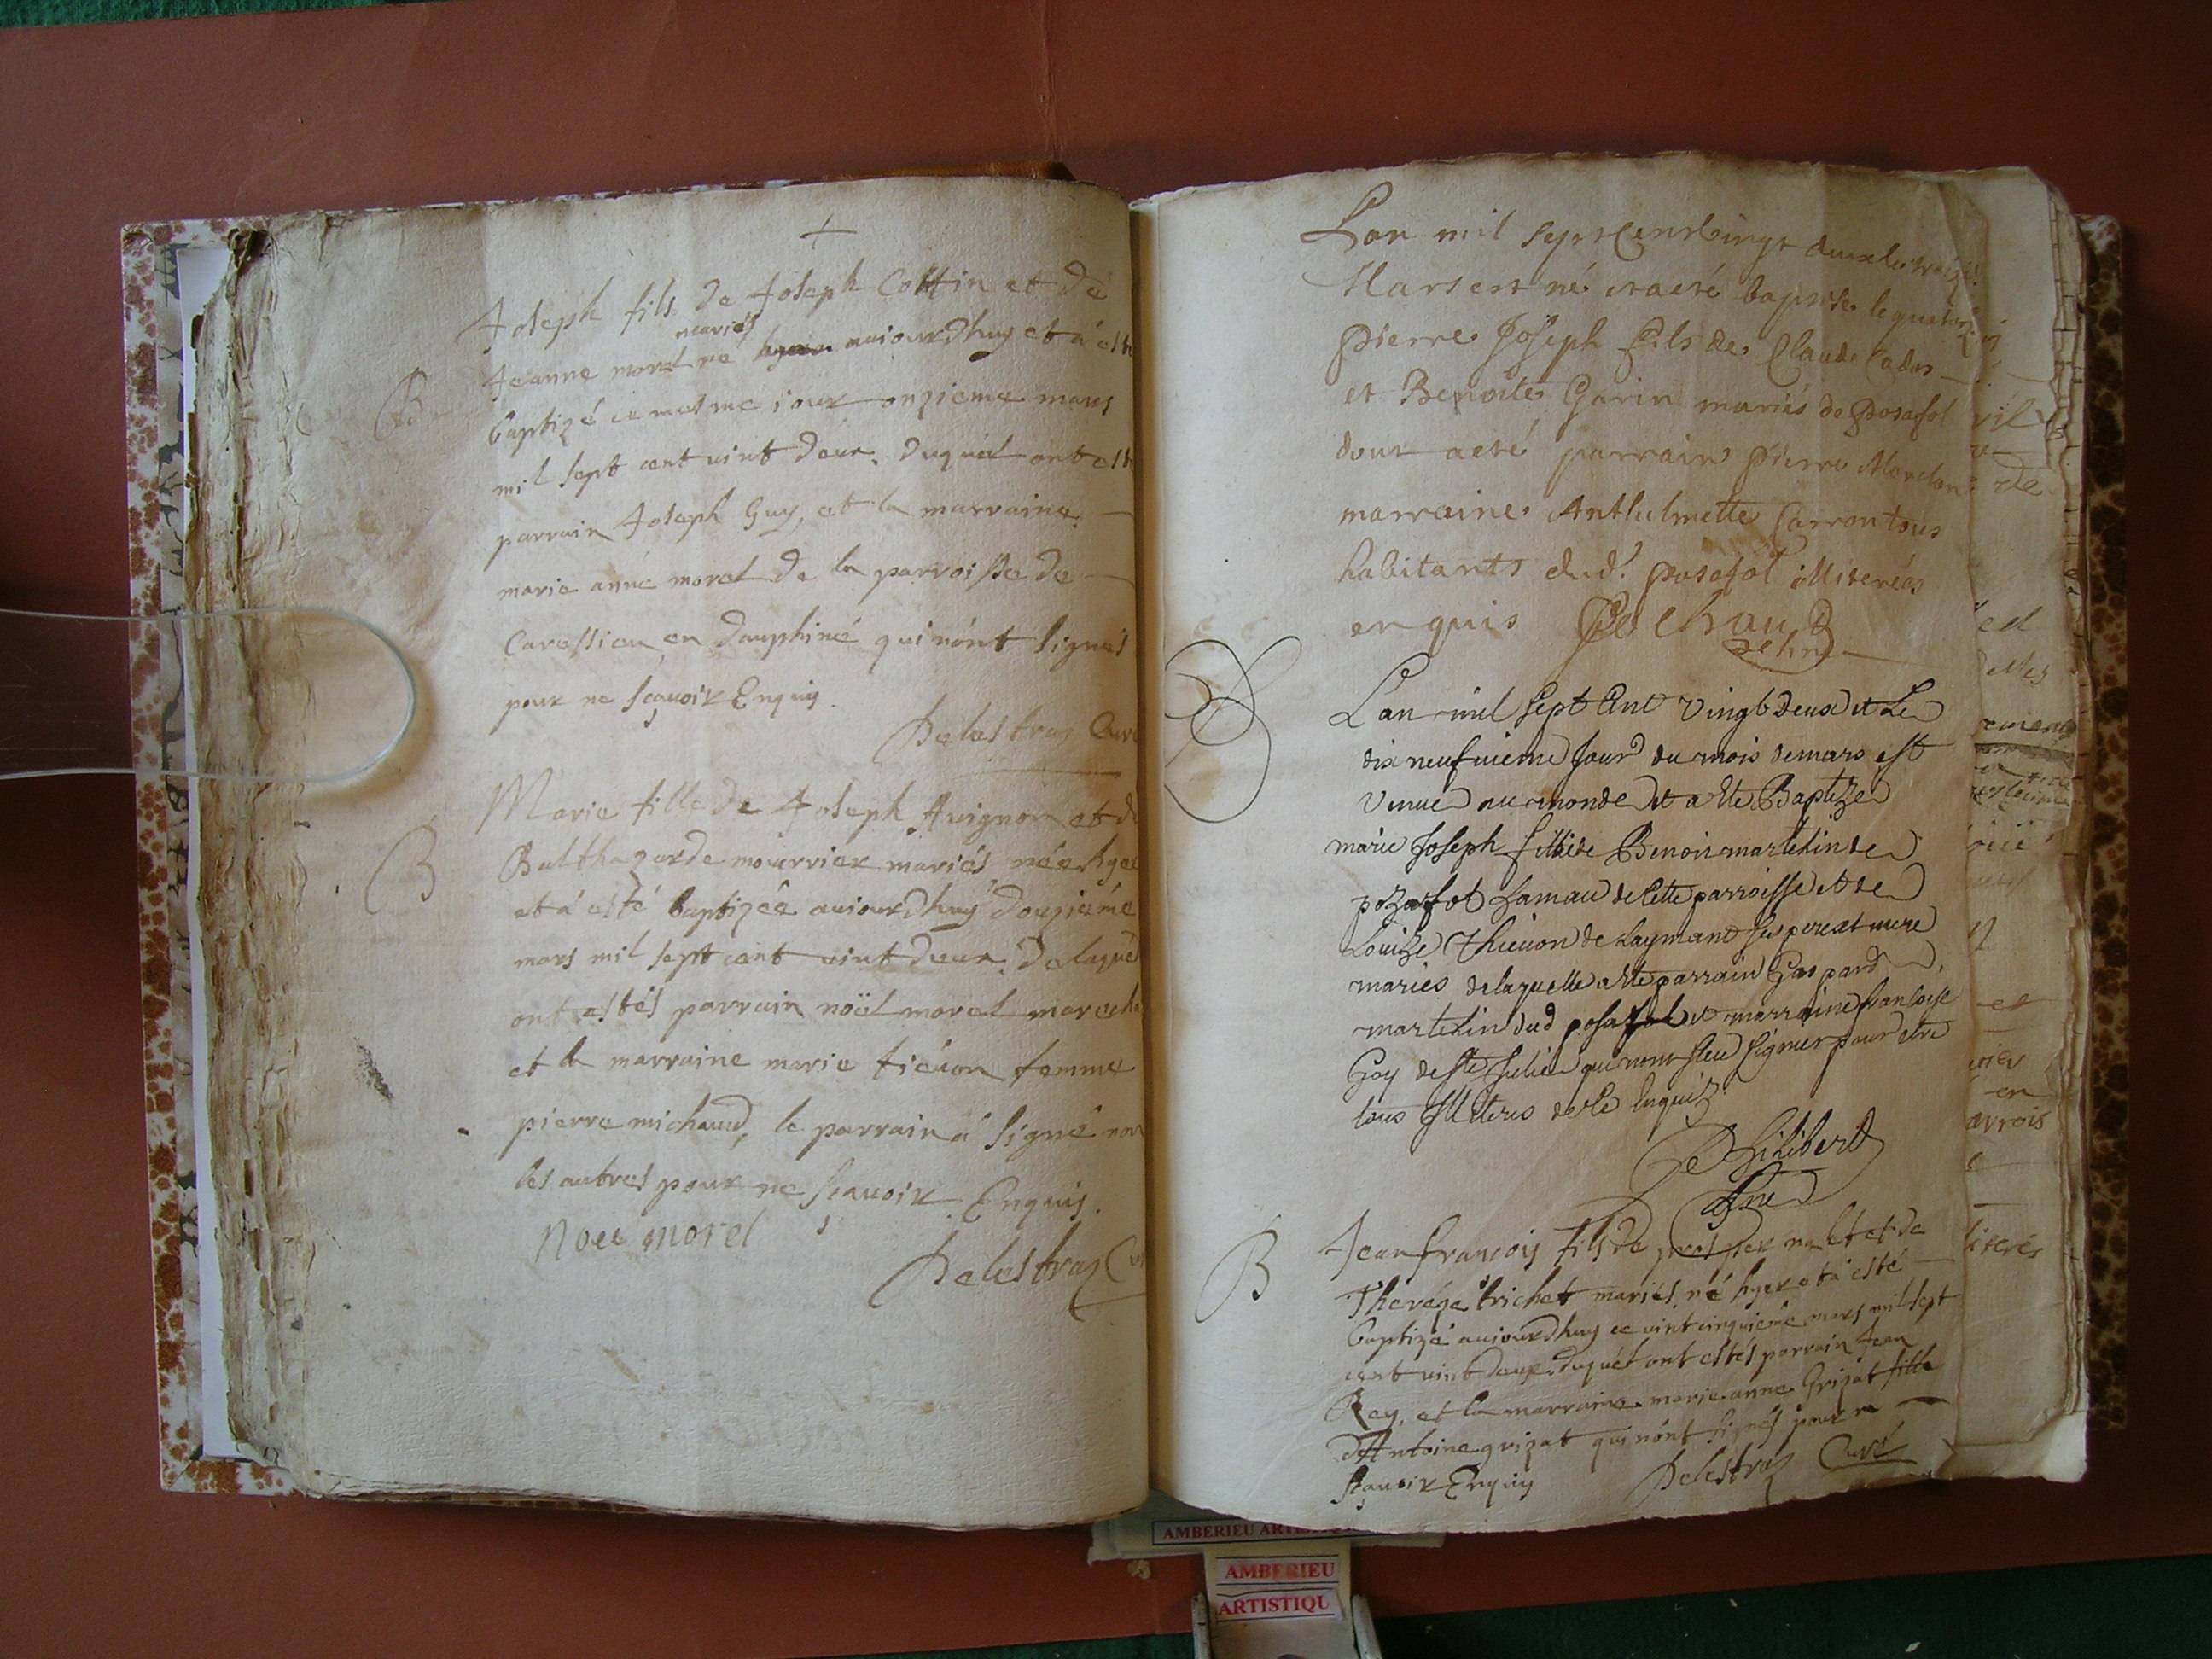 +
Joseph fils de Joseph Cottin et de
mariés
Jeanne morel né aujourdhuy et a esté
B
baptizé ce mesme jour onzieme mars
mil sept cent vint deux. duquél ont esté
parrain Joseph Guy, et la marraine
marie anne morel de la parroisse de
en dauphiné qui nónt signés
pour ne sçauoir Enquis.
Delestraz Curé
Marie fille de Joseph Auignon et de
B
Balthazarde mourrier mariés née hyer
et a esté baptizée aujourdhuy douziéme
mars mil sept cent vint deux. de laquel
ont estés parrain noël morel marecha
et la marraine marie tieuon femme
pierre michaud, le parrain a signé non
les autres pour ne sçauoir Enquis.
Noel morel
Delestraz Cur
Lan mil sept Cent vingt deux le
Mars est né et a esté baptisé le
Pierre Joseph fils de Claude
et Benoite Garin mariés de Posafol
dont a esté parrain Pierre
marraine Anthelmette Carron tous
habitants dud. posafol illiterés
enquis
Lan mil sept Cent vingt deux et Le
dix neufuieme Jour du mois de mars est
Venue au monde et a ete Baptizee
marie Joseph fille de Benoit martelin de
pozafol hamau de Cette parroisse et de
Louize Thieuon de Laymant ses pere et mere
mariés de laquelle a ete parrain Gaspard
martelin dud posafol et marraine francoise
Guy de St Julien qui nont sceu signer pour etre
tous Illiteres de ce Enquis
Philibert
B
Jean francois fils de prosper nalet et de
Theréze trichet mariés, né hyer et a esté
baptizé aujourdhuy ce vint cinquiéme mars mil sept
cent vint deux. duquél ont estés parrain Jean
Rey, et la marraine marie anne Grizat fille
dAntoine grizat qui nónt signés pour ne
sçauoir Enquis Delestraz Curé
AMBERIEU
AMBERIEU
ARTISTIQU